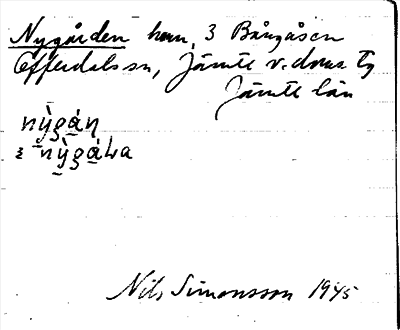 Nygården hem. 3 Bångåsen
Offerdals sn, Jämtl v. doms tg
Jämtl län
Nils Simonsson 1945